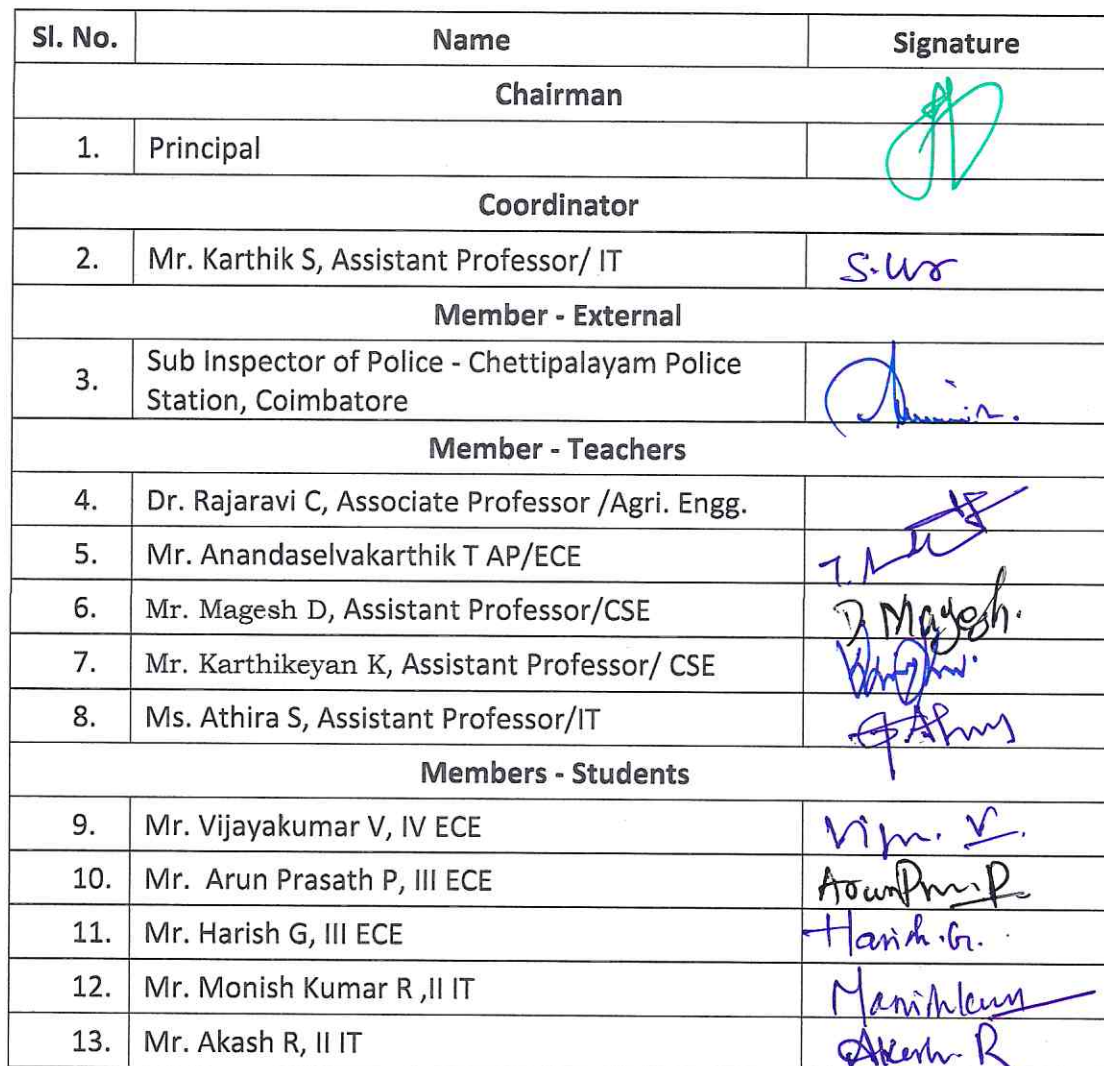 Sl. No. Name Signature
Chairman
1. Principal
Coordinator
2. Mr. Karthik S, Assistant Professor/ IT
Member - External
3. Sub Inspector of Police - Chettipalayam Police
Station, Coimbatore
Member - Teachers
4. Dr. Rajaravi C, Associate Professor /Agri. Engg.
5. Mr. Anandaselvakarthik T AP/ECE
6. Mr. Magesh D, Assistant Professor/CSE D. Magesh.
7. Mr. Karthikeyan K, Assistant Professor/ CSE
8. Ms. Athira S, Assistant Professor/IT
Members - Students
9. Mr. Vijayakumar V, IV ECE
10. Mr. Arun Prasath P, III ECE
11. Mr. Harish G, III ECE Harish.G.
12. Mr. Monish Kumar R ,II IT
13. Mr. Akash R, II IT